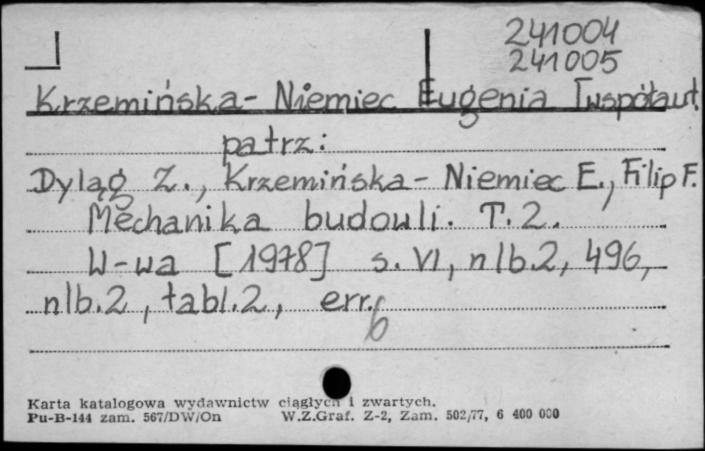 241004
241005
Krzemińska - Niemiec Eugenia [współaut.
patrz:
Dyląg Z., Krzemińska - Niemiec E., Filip F.
Mechanika budowli. T. 2.
W-wa [1978] s. VI, nlb. 2, 496,
nlb. 2, tabl. 2, err.
6
Karta katalogowa wydawnictw ciągłych i zwartych.
Pu-B-144 zam. 567/DW/On W.Z.Graf. Z-2, Zam. 502/77, 6 400 000